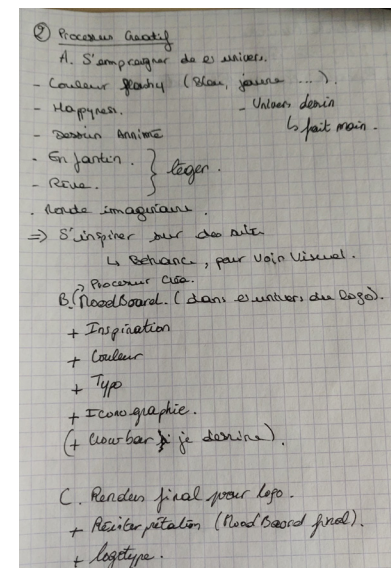 ② Processus Créatif
A. S'emprégner de es univers.
- Couleur flashy (Bleu, jaune ...).
- Happyness. - Univers dessin
↳ fait main.
- Dessin Annimé
- Enfantin. } léger.
- Rêve.
. Monde imaginaire.
=> S'inspirer sur des site
↳ Behance, pour voir visuel.
↳ Processus Créa.
B. (MoodBoard. (dans es univers du logo).
+ Inspiration
+ Couleur
+ Typo
+ Iconographie.
(+ je dessine).
C. Rendu final pour logo.
+ (Mood Board final).
+ logotype.